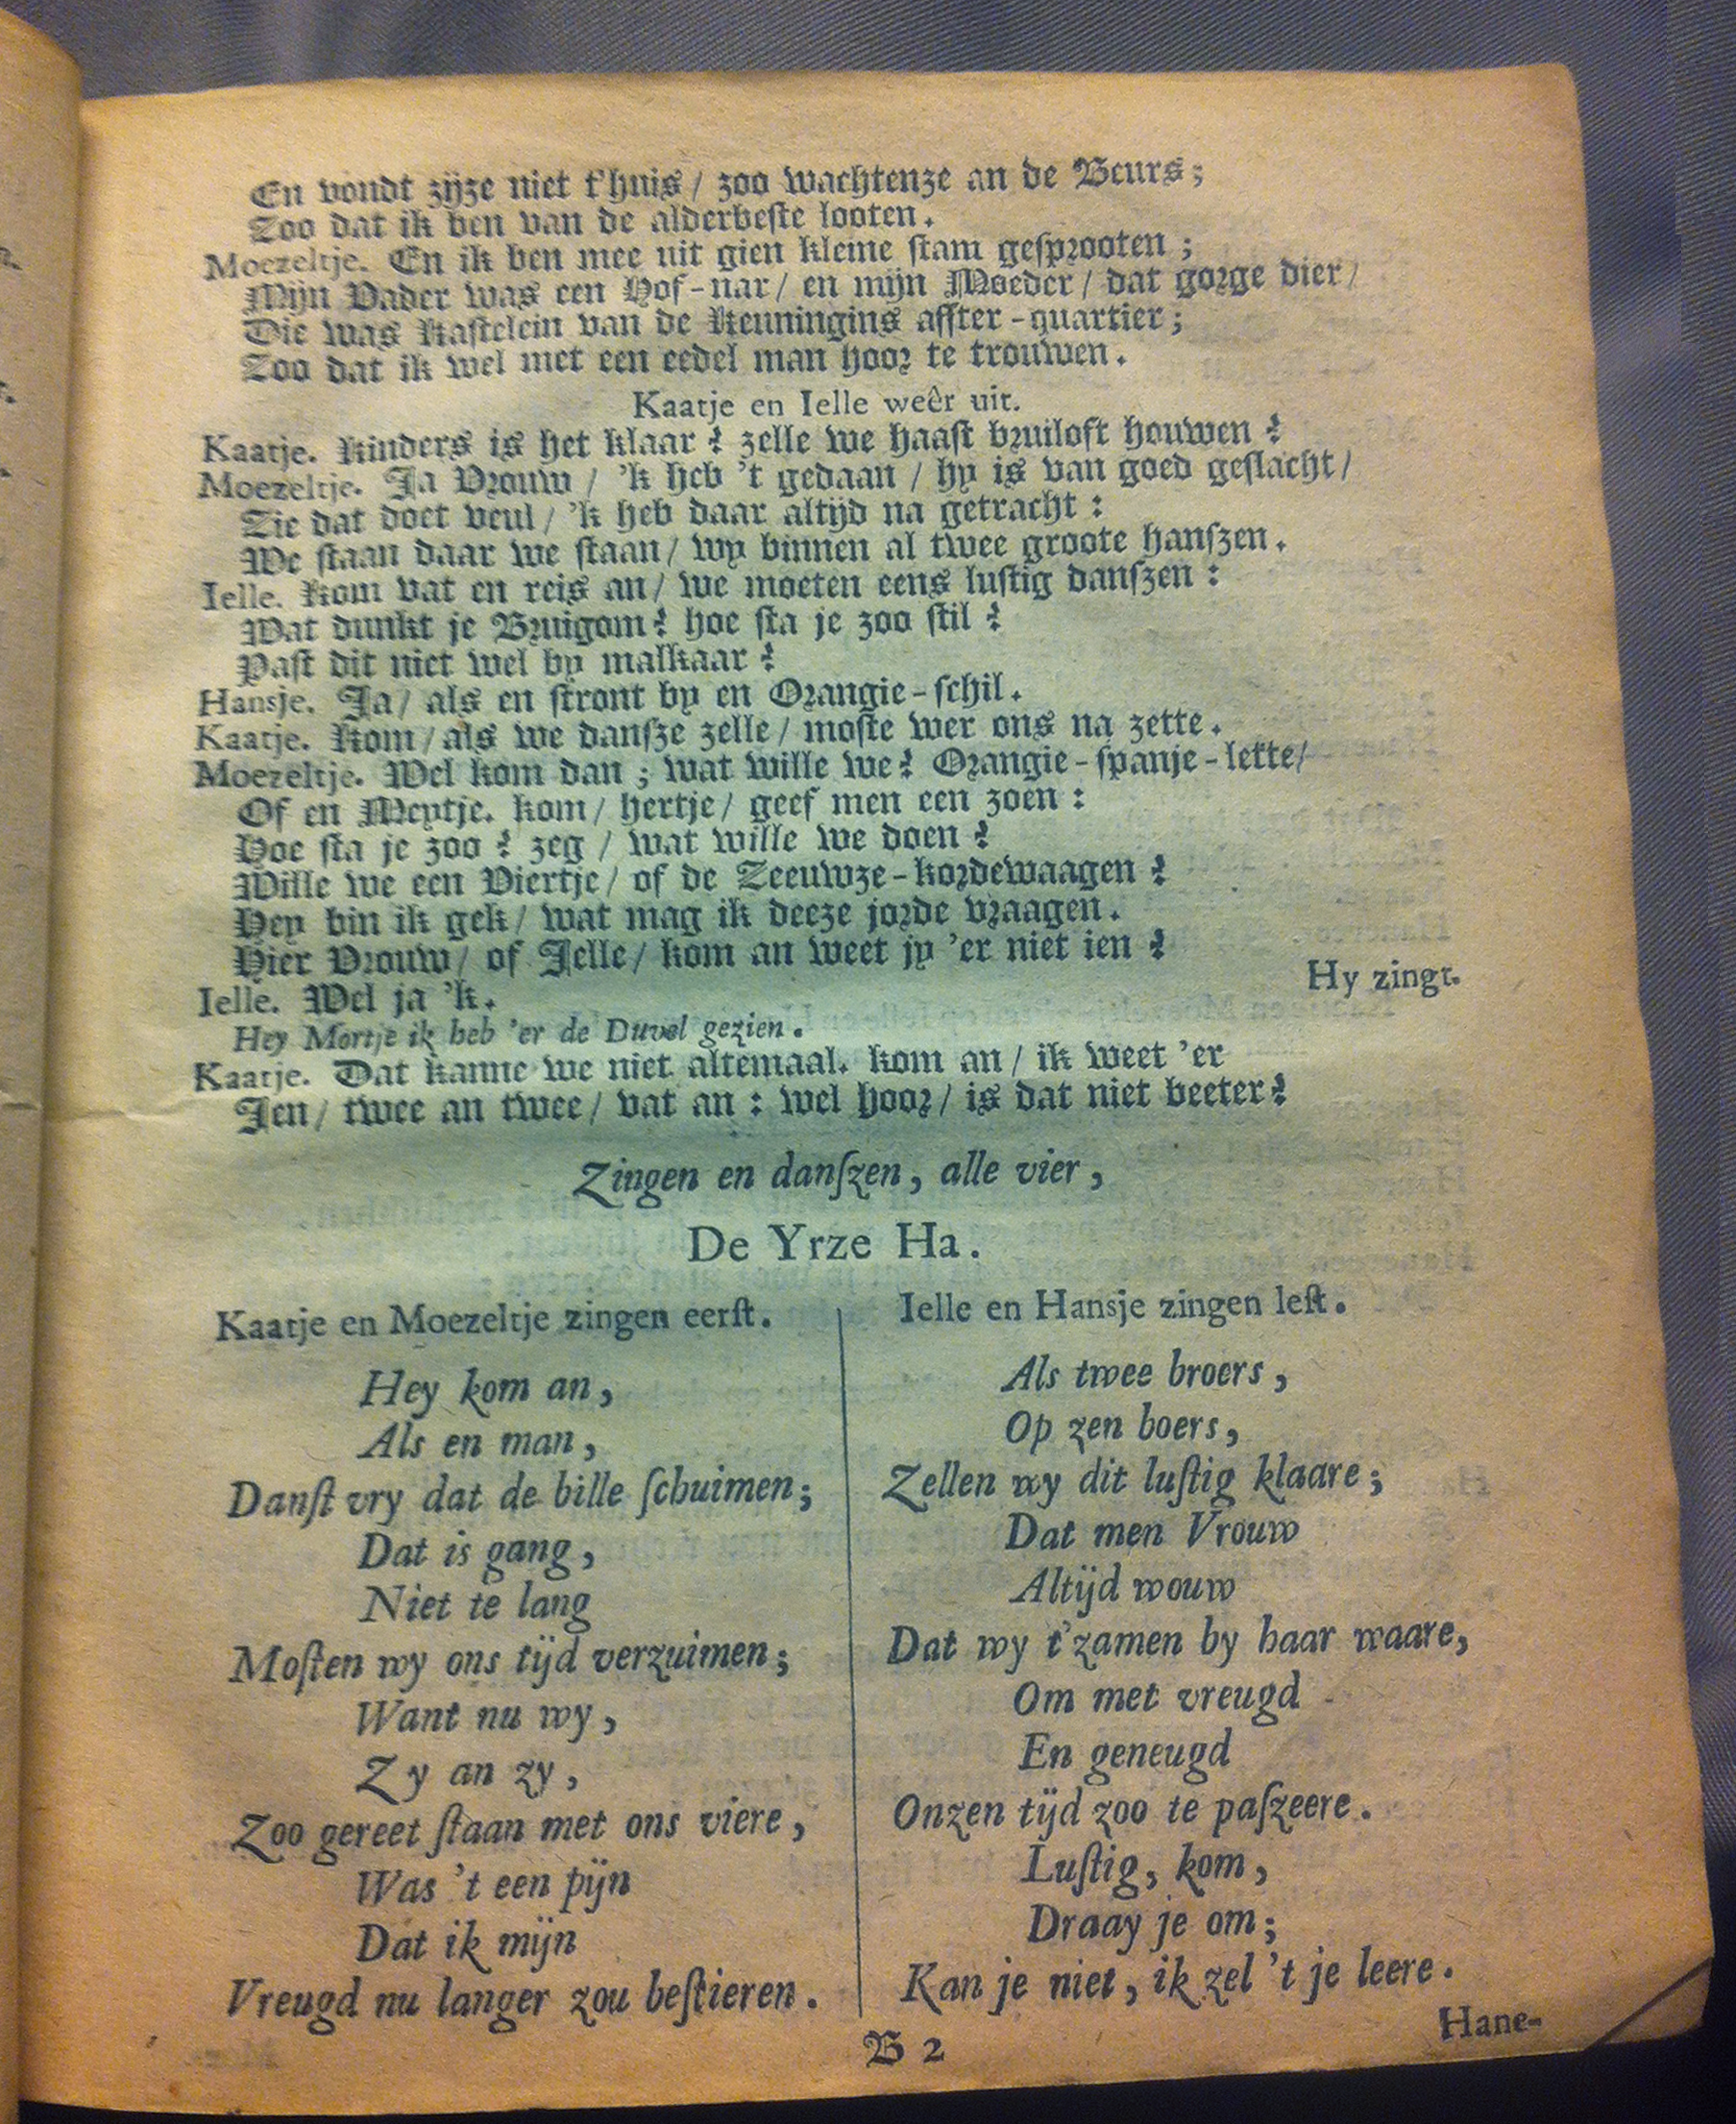 En vondt zijze niet t'huis / zoo wachtenze an de Beurs;
Zoo dat ik ben van de alderbeste looten.
Moezeltje. En ik ben mee uit gien kleine stam gesprooten ;
Mijn Vader was een Hof-nar / en mijn Moeder / dat gorge dier /
Die was Kastelein van de Keuningins affter-quartier ;
Zoo dat ik wel met een eedel man hoor te trouwen.
Kaatje en Ielle weêr uit.
Kaatje. Kinders is het klaar ? zelle we haast bruiloft houwen ?
Moezeltje. Ja Vrouw / 'k heb 't gedaan / hy is van goed geslacht /
Zie dat doet veul / 'k heb daar altijd na getracht :
We staan daar we staan / wy binnen al twee groote hanszen.
Ielle. Kom vat en reis an / we moeten eens lustig danszen :
Wat dunkt je Bruigom ? hoe sta je zoo stil ?
Past dit niet wel by malkaar ?
Hansje. Ja / als en stront by en Orangie-schil.
Kaatje. Kom / als we dansze zelle / moste wer ons na zette.
Moezeltje. Wel kom dan ; wat wille we ? Orangie-spanje-lette /
Of en Meytje. kom / hertje / geef men een zoen :
Hoe sta je zoo ? zeg / wat wille we doen ?
Wille we een Viertje / of de Zeeuwze-kordewaagen ?
Hey bin ik gek / wat mag ik deeze jorde vraagen.
Hier Vrouw / of Jelle / kom an weet jy 'er niet ien ?
Ielle. Wel ja 'k. Hy zingt.
Hey Mortje ik heb 'er de Duvel gezien.
Kaatje. Dat kanne we niet altemaal. kom an / ik weet 'er
Jen / twee an twee / vat an : wel hoor / is dat niet beeter ?
Zingen en danſzen, alle vier,
De Yrze Ha.
Kaatje en Moezeltje zingen eerſt.
Hey kom an,
Als en man,
Danſt vry dat de bille ſchuimen;
Dat is gang,
Niet te lang
Moſten wy ons tijd verzuimen;
Want nu wy,
Zy an zy,
Zoo gereet ſtaan met ons viere,
Was 't een pijn
Dat ik mijn
Vreugd nu langer zou beſtieren.
Ielle en Hansje zingen leſt.
Als twee broers,
Op zen boers,
Zellen wy dit luſtig klaare;
Dat men Vrouw
Altijd wouw
Dat wy t'zamen by haar waare,
Om met vreugd
En geneugd
Onzen tijd zoo te paſzeere.
Luſtig, kom,
Draay je om;
Kan je niet, ik zel 't je leere.
B 2
Hane-